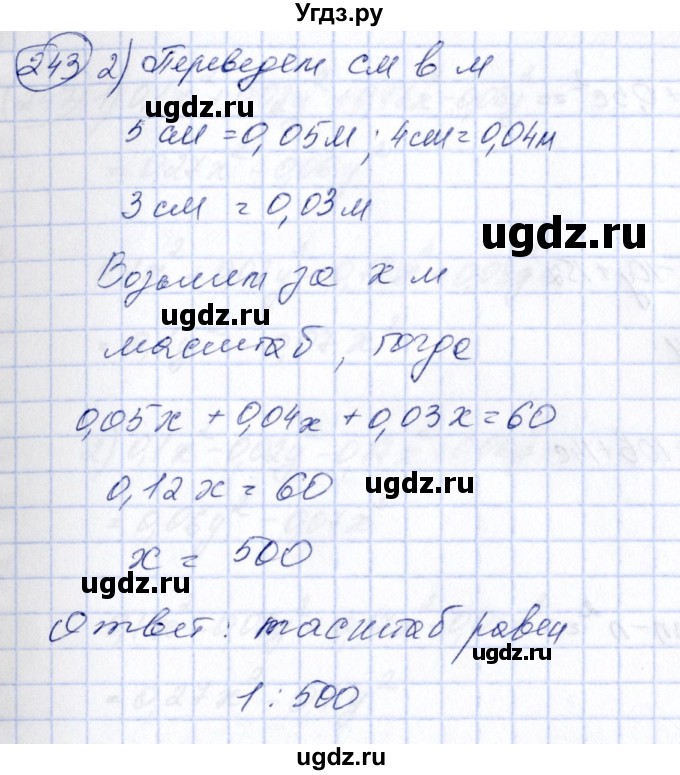 Угдз.ру
243 2) Переведем см в м
ugdz.ru
5 см = 0,05м; 4см = 0,04м
3 см = 0,03м
ugdz.ru
Возьмем за x м
ugdz.ru
масштаб, тогда
0,05x + 0,04x + 0,03x = 60
0,12x = 60
ugdz.ru
x = 500
ugdz.ru
Ответ: масштаб равен
ugdz.ru
1 : 500
ugdz.ru